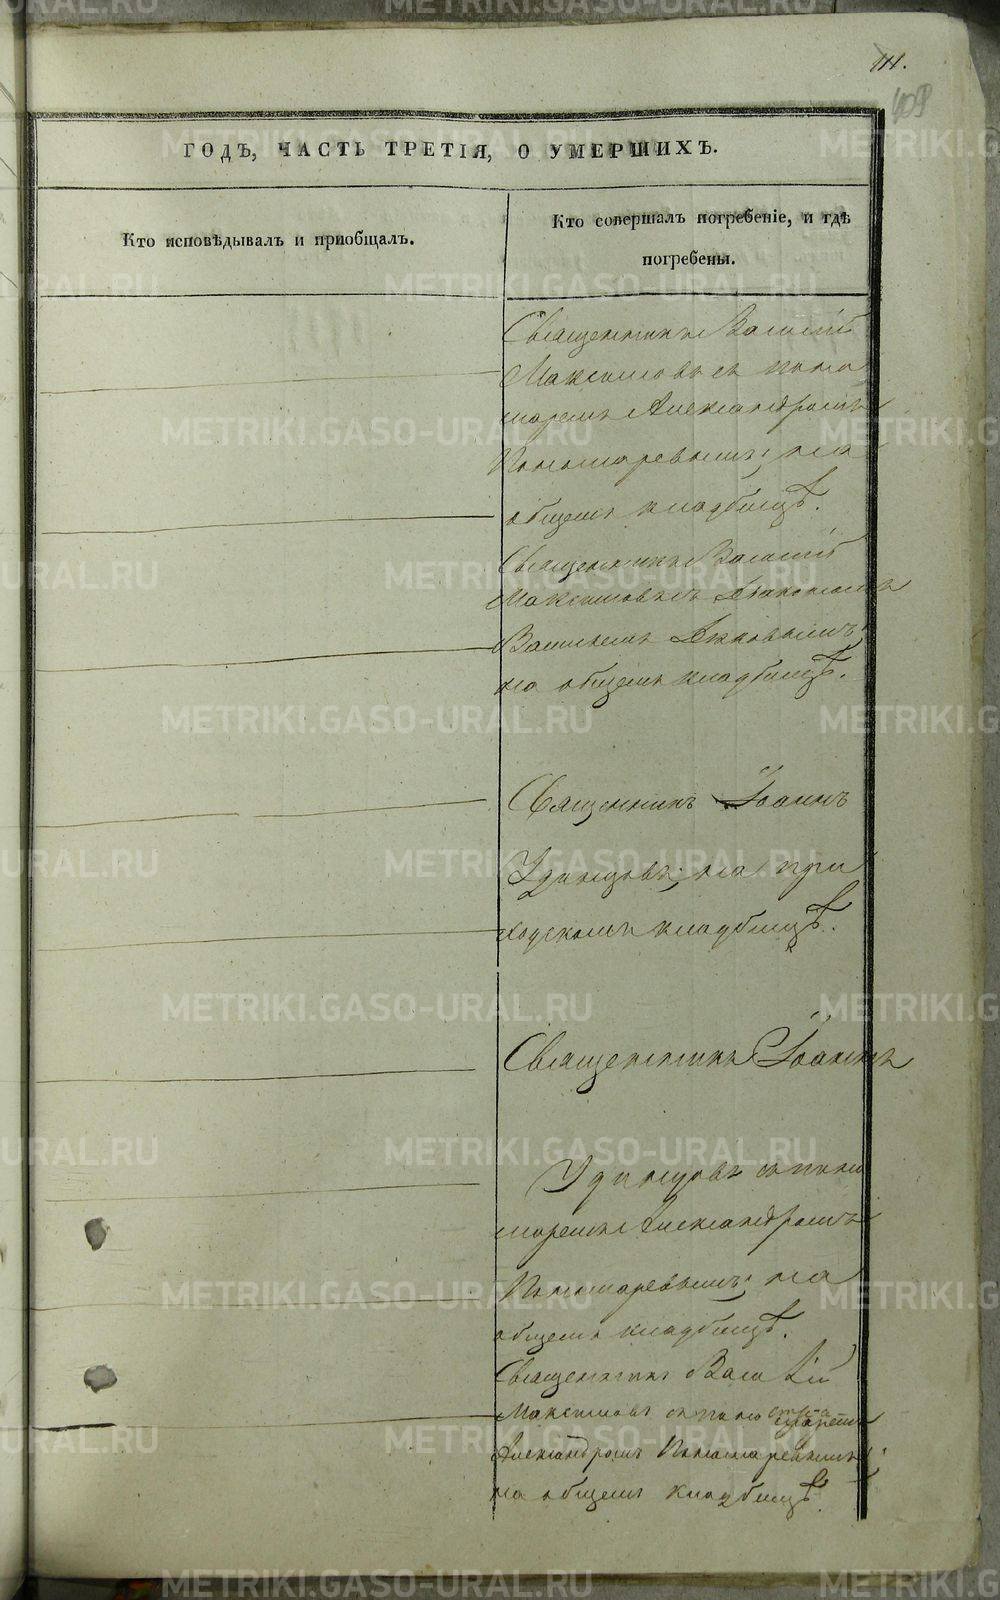 111.
409
ГОДЪ, ЧАСТЬ ТРЕТІЯ, О УМЕРШИХЪ.
Кто исповѣдывалъ и пріобщалъ.
Кто совершалъ погребеніе, и гдѣ
погребены.
Священникъ Василій
Максимовъ съ поно
маремъ Александромъ
Пономаревымъ; на
общемъ кладбищѣ.
Священникъ Василій
Максимовъ съ Дьякономъ
Васильемъ
на общемъ кладбищѣ.
Священникъ Іоаннъ
Удинцовъ; на при
ходскомъ кладбищѣ.
Священникъ Іоаннъ
Удинцовъ съ поно
маремъ Александромъ
Пономаревымъ; на
общемъ кладбищѣ.
Священникъ Василій
Максимовъ съ поно маремъ
Александромъ Пономаревымъ;
на общемъ кладбищѣ.
METRIKI.GASO-URAL.RU